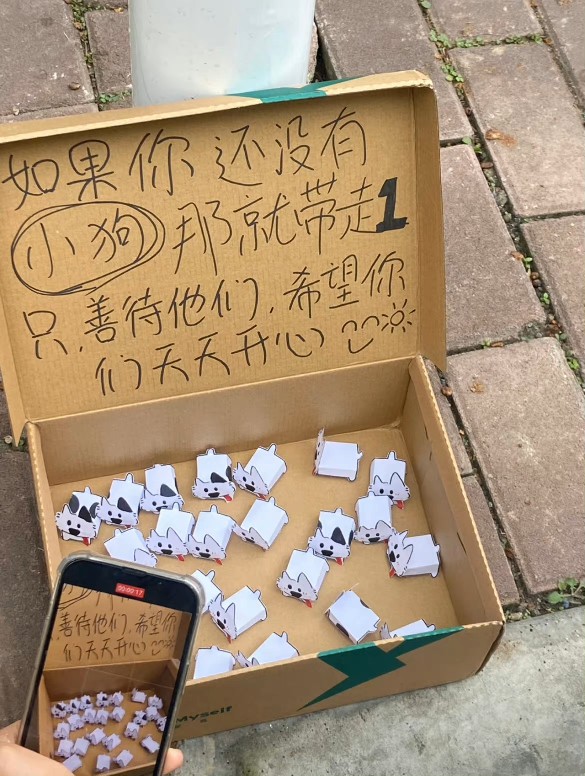 如果你还没有
小狗 那就带走1
只,善待他们,希望你
们天天开心
00:02:17
善待他们,希望你
们天天开心
Myself